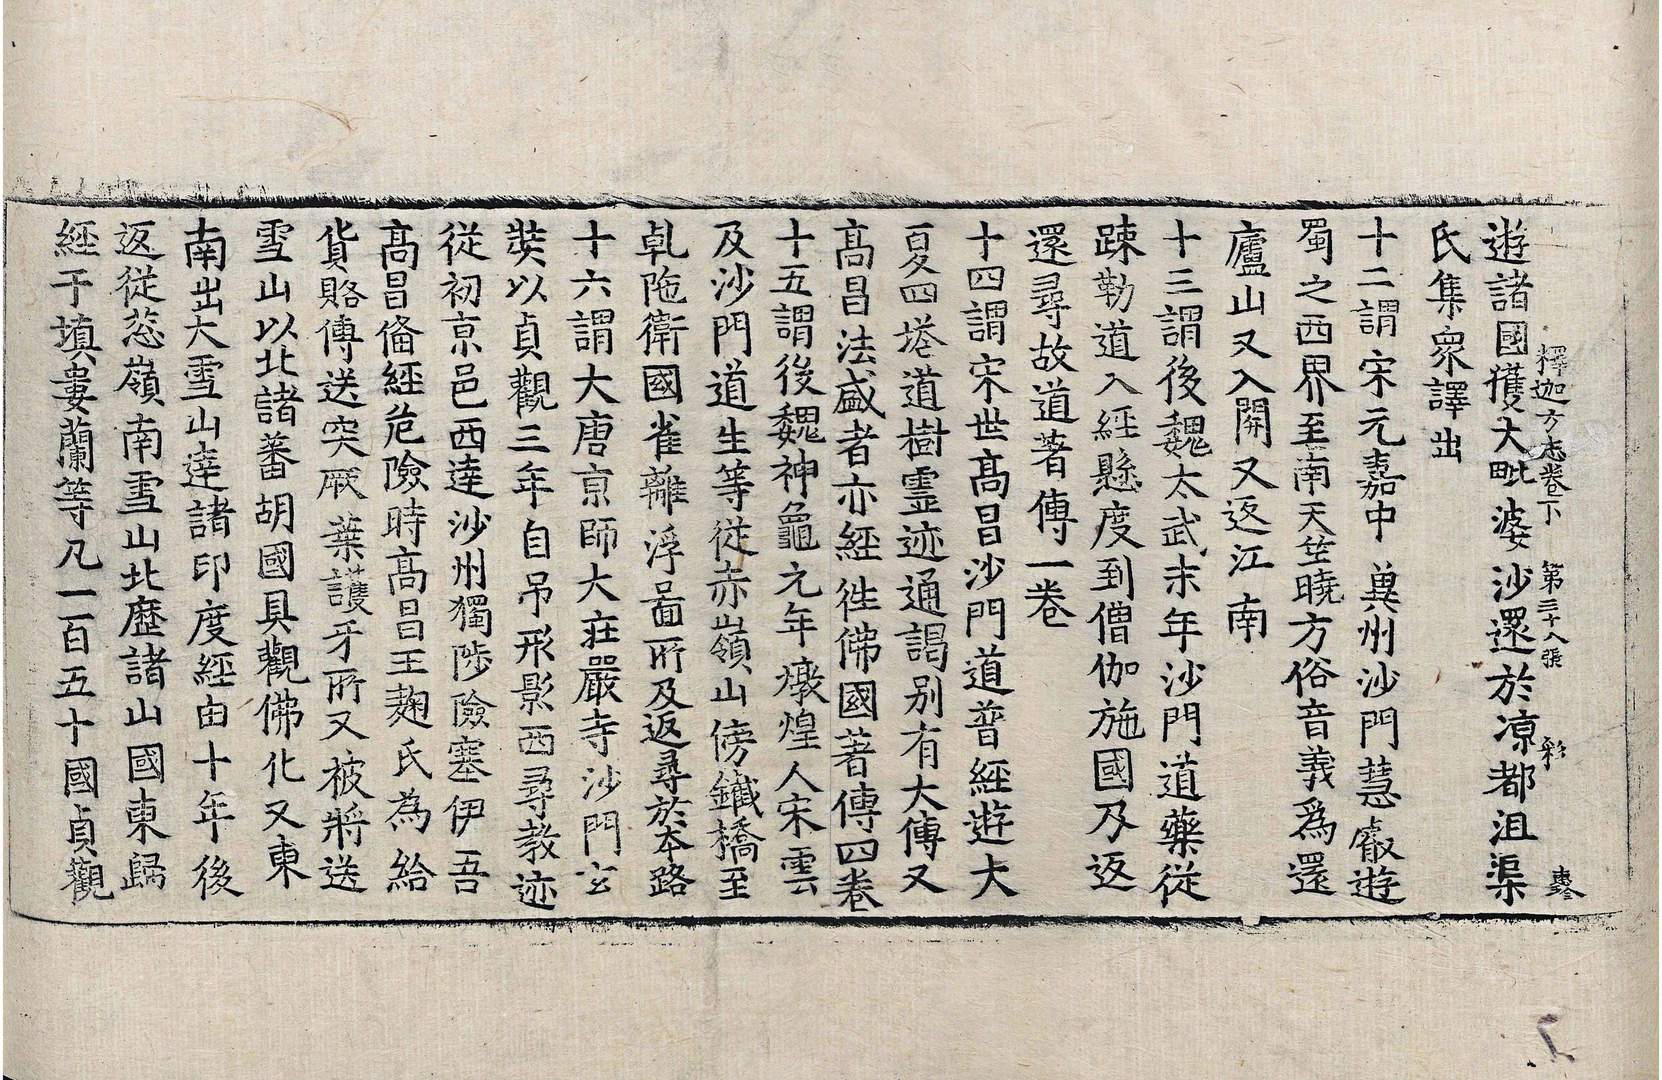 釋迦方志卷下 第三十八張 彩
遊諸國獲大毗婆沙還於凉都沮渠
氏集衆譯出
十二謂宋元嘉中兾州沙門慧叡遊
蜀之西界至南天竺曉方俗音義爲還
廬山又入關又返江南
十三謂後魏太武末年沙門道藥從
踈勒道入經懸度到僧伽施國及返
還尋故道著傳一卷
十四謂宋世髙昌沙門道普經遊大
夏四塔道樹霊迹通謁别有大傳又
髙昌法盛者亦經徃佛國著傳四卷
十五謂後魏神龜元年燉煌人宋雲
及沙門道生等從赤嶺山傍鐵橋至
乹陁衛國雀離浮啚所及返尋於本路
十六謂大唐京師大莊嚴寺沙門玄
奘以貞觀三年自吊形影西尋教迹
從初京邑西達沙州獨陟險塞伊吾
髙昌俻經危險時髙昌王麹氏為給
貨賂傳送突厥葉護牙所又被將送
雪山以北諸蕃胡國具觀佛化又東
南出大雪山達諸印度經由十年後
返從葱嶺南雪山北歷諸山國東歸
經于填婁蘭等凡一百五十國貞觀